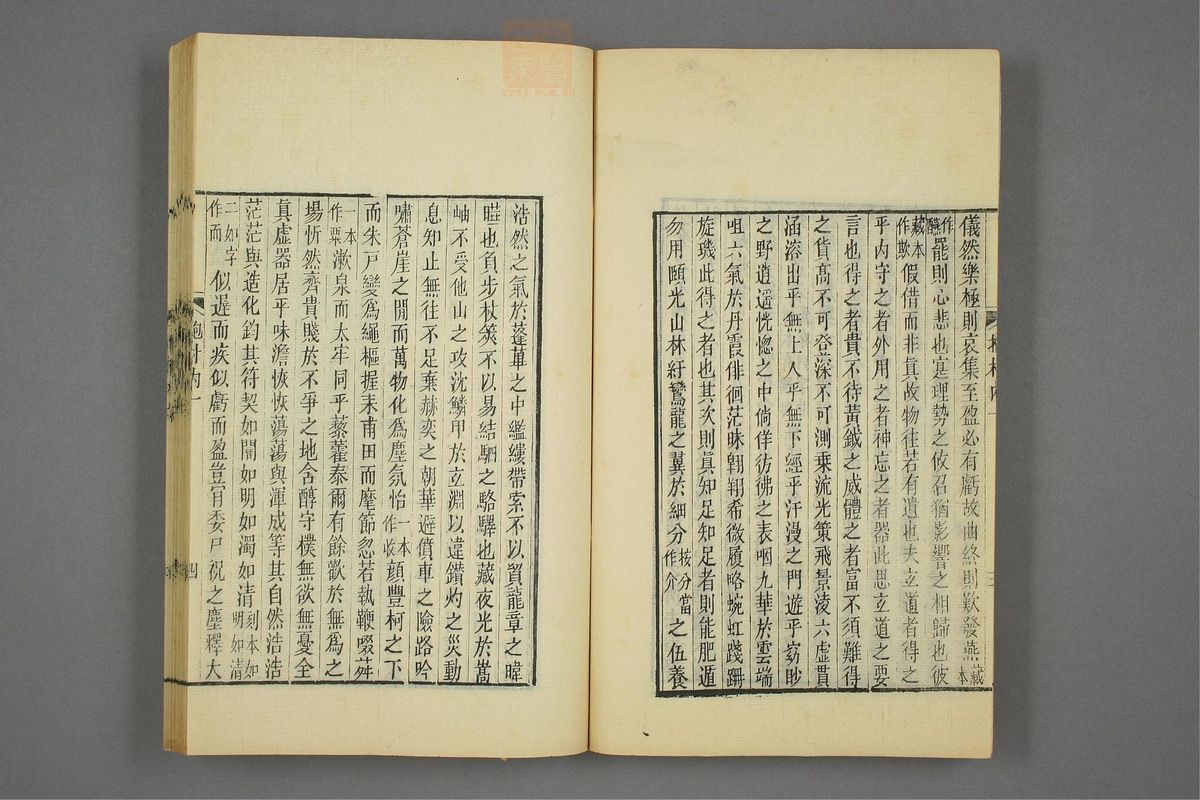 儀然樂極則哀集至盈必有虧故曲終則歎發燕藏本
作醼罷則心悲也寔理勢之攸召猶影響之相歸也彼
藏本作欺假借而非真故物往若有遺也夫玄道者得之
乎內守之者外用之者神忘之者器此思玄道之要
言也得之者貴不待黃鉞之威體之者富不須難得
之貨高不可登深不可測乗流光策飛景淩六虛貫
涵溶出乎無上入乎無下經乎汗漫之門遊乎窈眇
之野逍遥恍惚之中倘佯彷彿之表咽九華於雲端
咀六氣於丹霞俳徊茫昧翱翔希微履略蜿虹踐跚
旋璣此得之者也其次則真知足知足者則能肥遁
勿用頤光山林紆鸞龍之翼於細分按分當作介之伍養
浩然之氣於蓬蓽之中繿縷帶索不以貿龍章之暐
曄也負步杖筴不以易結駟之駱驛也藏夜光於嵩
岫不受他山之攻沈鱗甲於玄淵以違鑽灼之災動
息知止無往不足棄赫奕之朝華避僨車之險路吟
嘯蒼崖之閒而萬物化為塵氛怡一本作收顔豐柯之下
而朱戶變為繩樞握耒甫田而麾節忽若執鞭啜荈
一本作粟漱泉而太牢同乎藜藿泰爾有餘歡於無為之
場忻然齊貴賤於不爭之地含醇守樸無欲無憂全
真虛器居平味澹恢恢蕩蕩與渾成等其自然浩浩
茫茫與造化鈞其符契如闇如明如濁如清刻本如明如清
二如字作而似遲而疾似虧而盈豈肯委尸祝之塵釋大
抱朴內一
四